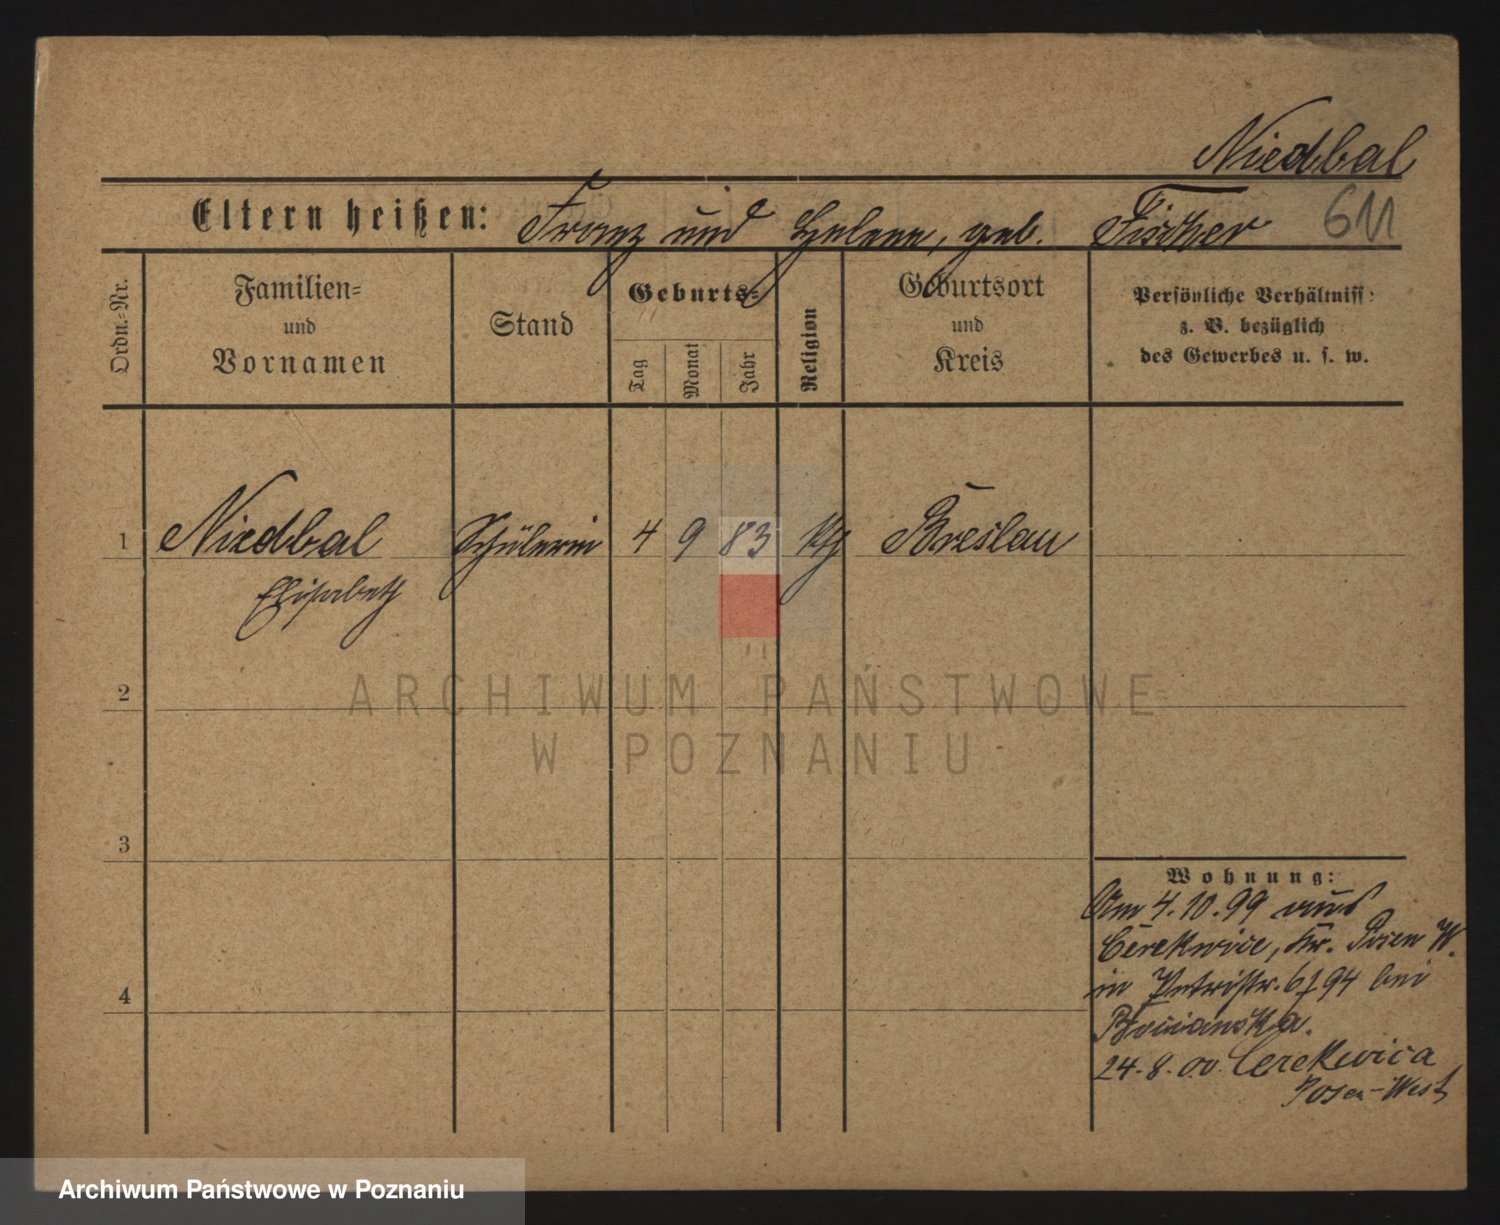 Niedbal
Eltern heißen: Franz und Helene, geb. Fischer 611
Ordn.-Nr.
Familien-
und
Vornamen
Stand
Geburts-
Tag
Monat
Jahr
Religion
Geburtsort
und
Kreis
Persönliche Verhältniss:
z. B. bezüglich
des Gewerbes u. s. w.
1 Niedbal Schülerin 4 9 83 kth Breslau
Elisabeth
2
ARCHIWUM PAŃSTWOWE
W POZNANIU
3
Wohnung:
Am 4.10.99 aus
Cerekwice, Kr. Posen W.
4
in Petristr. 6 94 bei
24.8.00. Cerekwica
Posen-West
Archiwum Państwowe w Poznaniu